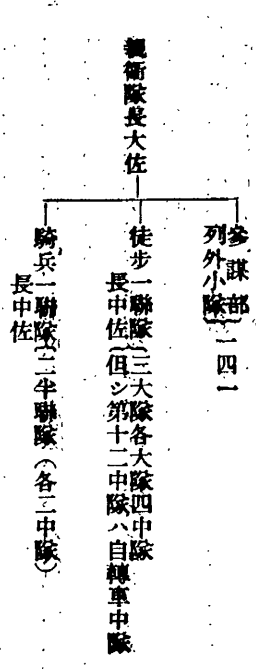 親衛隊長大佐
參謀部
列外小隊}一四一
徒步一聯隊{三大隊各大隊四中隊
長中佐{但シ第十二中隊ハ自轉車中隊
騎兵一聯隊{二半聯隊(各二中隊)
長中佐